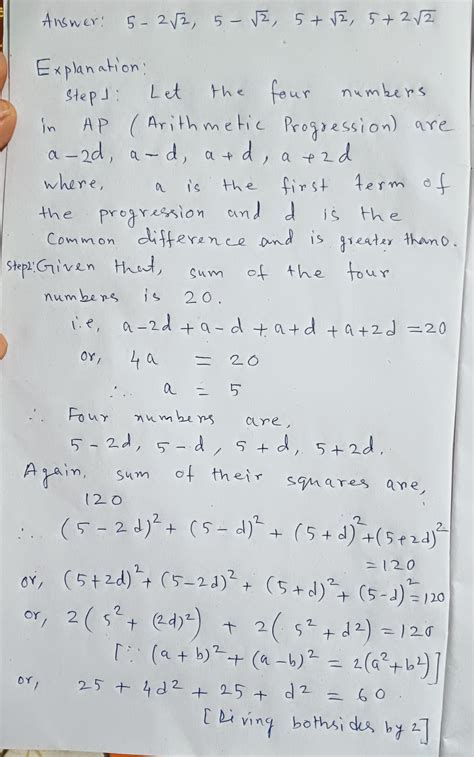 Answer: 5 - 2√2, 5 - √2, 5 + √2, 5 + 2√2
Explanation:
Step1: Let the four numbers
in AP (Arithmetic Progression) are
a-2d, a-d, a+d, a+2d
where, a is the first term of
the progression and d is the
common difference and is greater than 0.
Step2: Given that, sum of the four
numbers is 20.
i.e, a-2d + a-d + a+d + a+2d = 20
or, 4a = 20
∴ a = 5
∴ Four numbers are,
5-2d, 5-d, 5+d, 5+2d.
Again, sum of their squares are,
120
∴ (5-2d)² + (5-d)² + (5+d)² + (5+2d)²
= 120
or, (5+2d)² + (5-2d)² + (5+d)² + (5-d)² = 120
or, 2(5² + (2d)²) + 2(5² + d²) = 120
[∵ (a+b)² + (a-b)² = 2(a²+b²)]
or, 25 + 4d² + 25 + d² = 60
[Diving bothsides by 2]